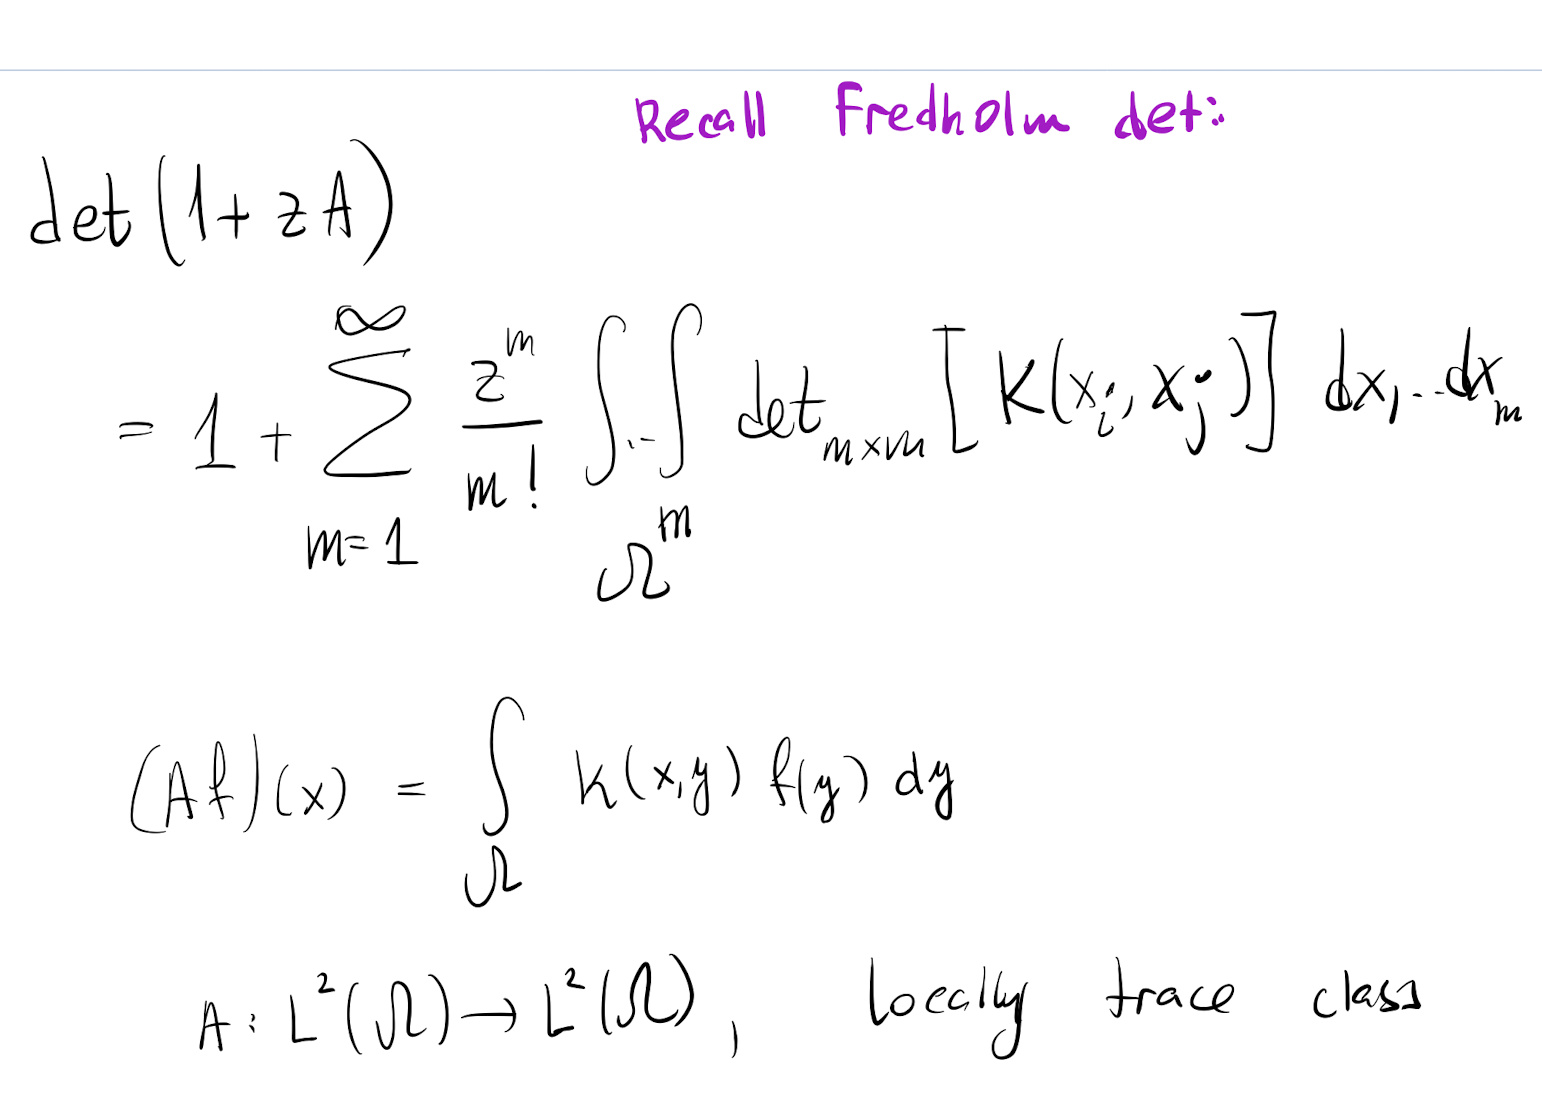 Recall Fredholm det:
det(1+zA)
= 1 + \sum_{m=1}^{\infty} \frac{z^m}{m!} \int..\int_{\Omega^m} det_{m×m} [K(x_i, x_j)] dx_1...dx_m
(Af)(x) = \int_{\Omega} K(x,y) f(y) dy
A: L^2(Ω) → L^2(Ω), locally trace class